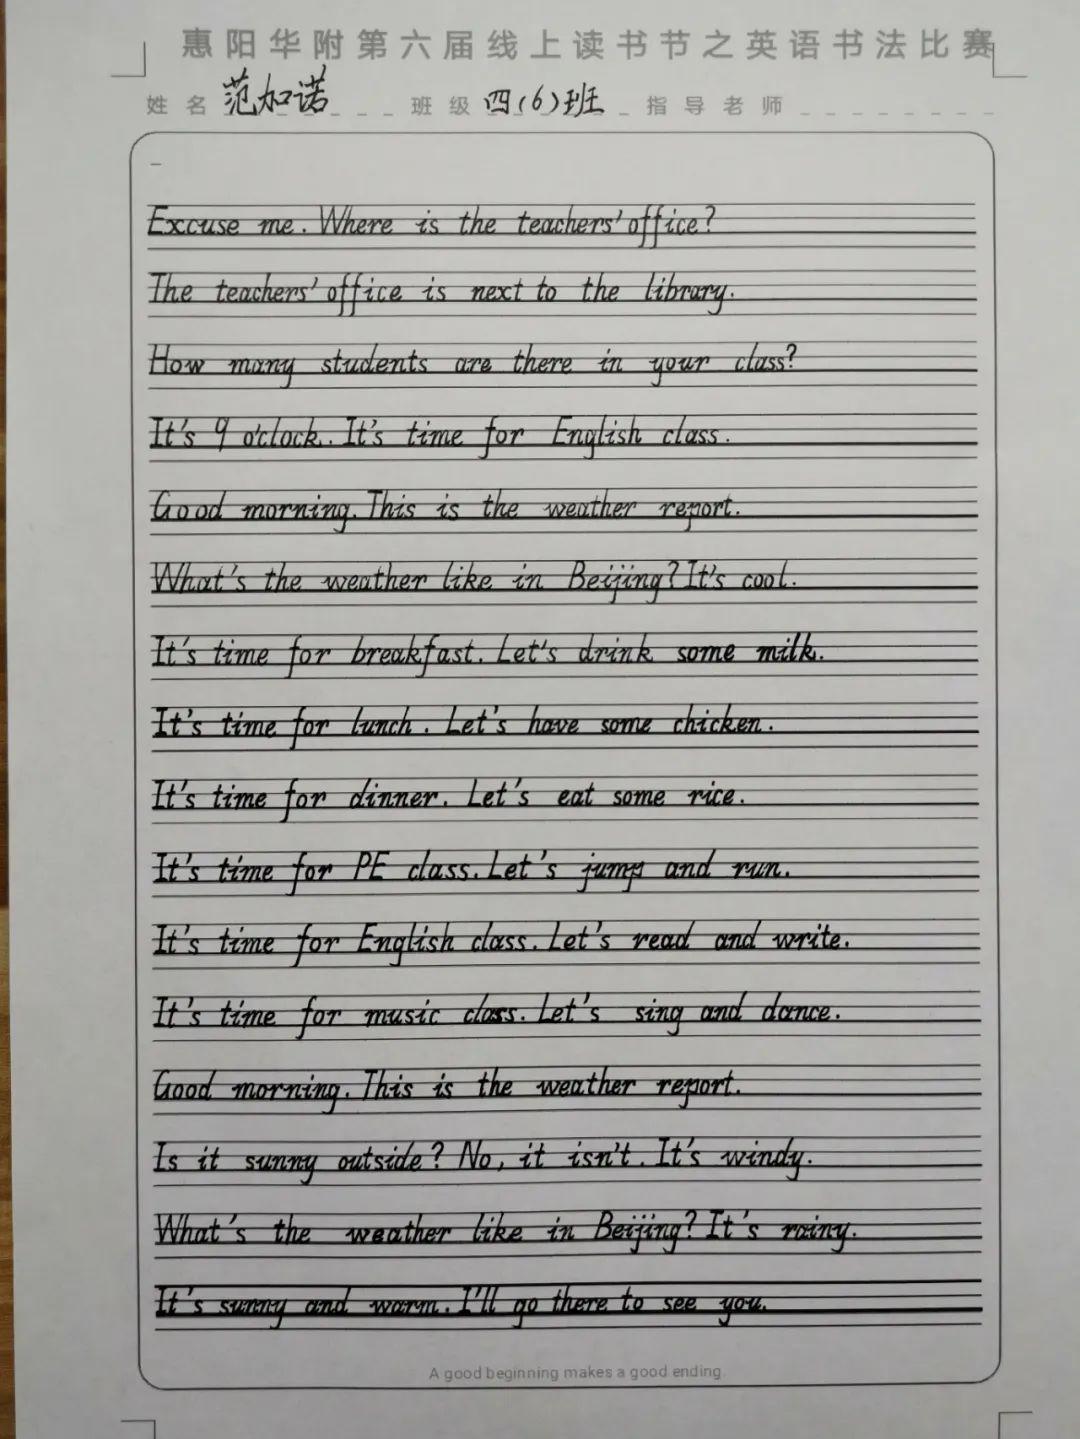 惠阳华附第六届线上读书节之英语书法比赛
姓名 范加诺 班级 四(6)班 指导老师
Excuse me. Where is the teachers' office?
The teachers' office is next to the library.
How many students are there in your class?
It's 9 o'clock. It's time for English class.
Good morning. This is the weather report.
What's the weather like in Beijing? It's cool.
It's time for breakfast. Let's drink some milk.
It's time for lunch. Let's have some chicken.
It's time for dinner. Let's eat some rice.
It's time for PE class. Let's jump and run.
It's time for English class. Let's read and write.
It's time for music class. Let's sing and dance.
Good morning. This is the weather report.
Is it sunny outside? No, it isn't. It's windy.
What's the weather like in Beijing? It's rainy.
It's sunny and warm. I'll go there to see you.
A good beginning makes a good ending.